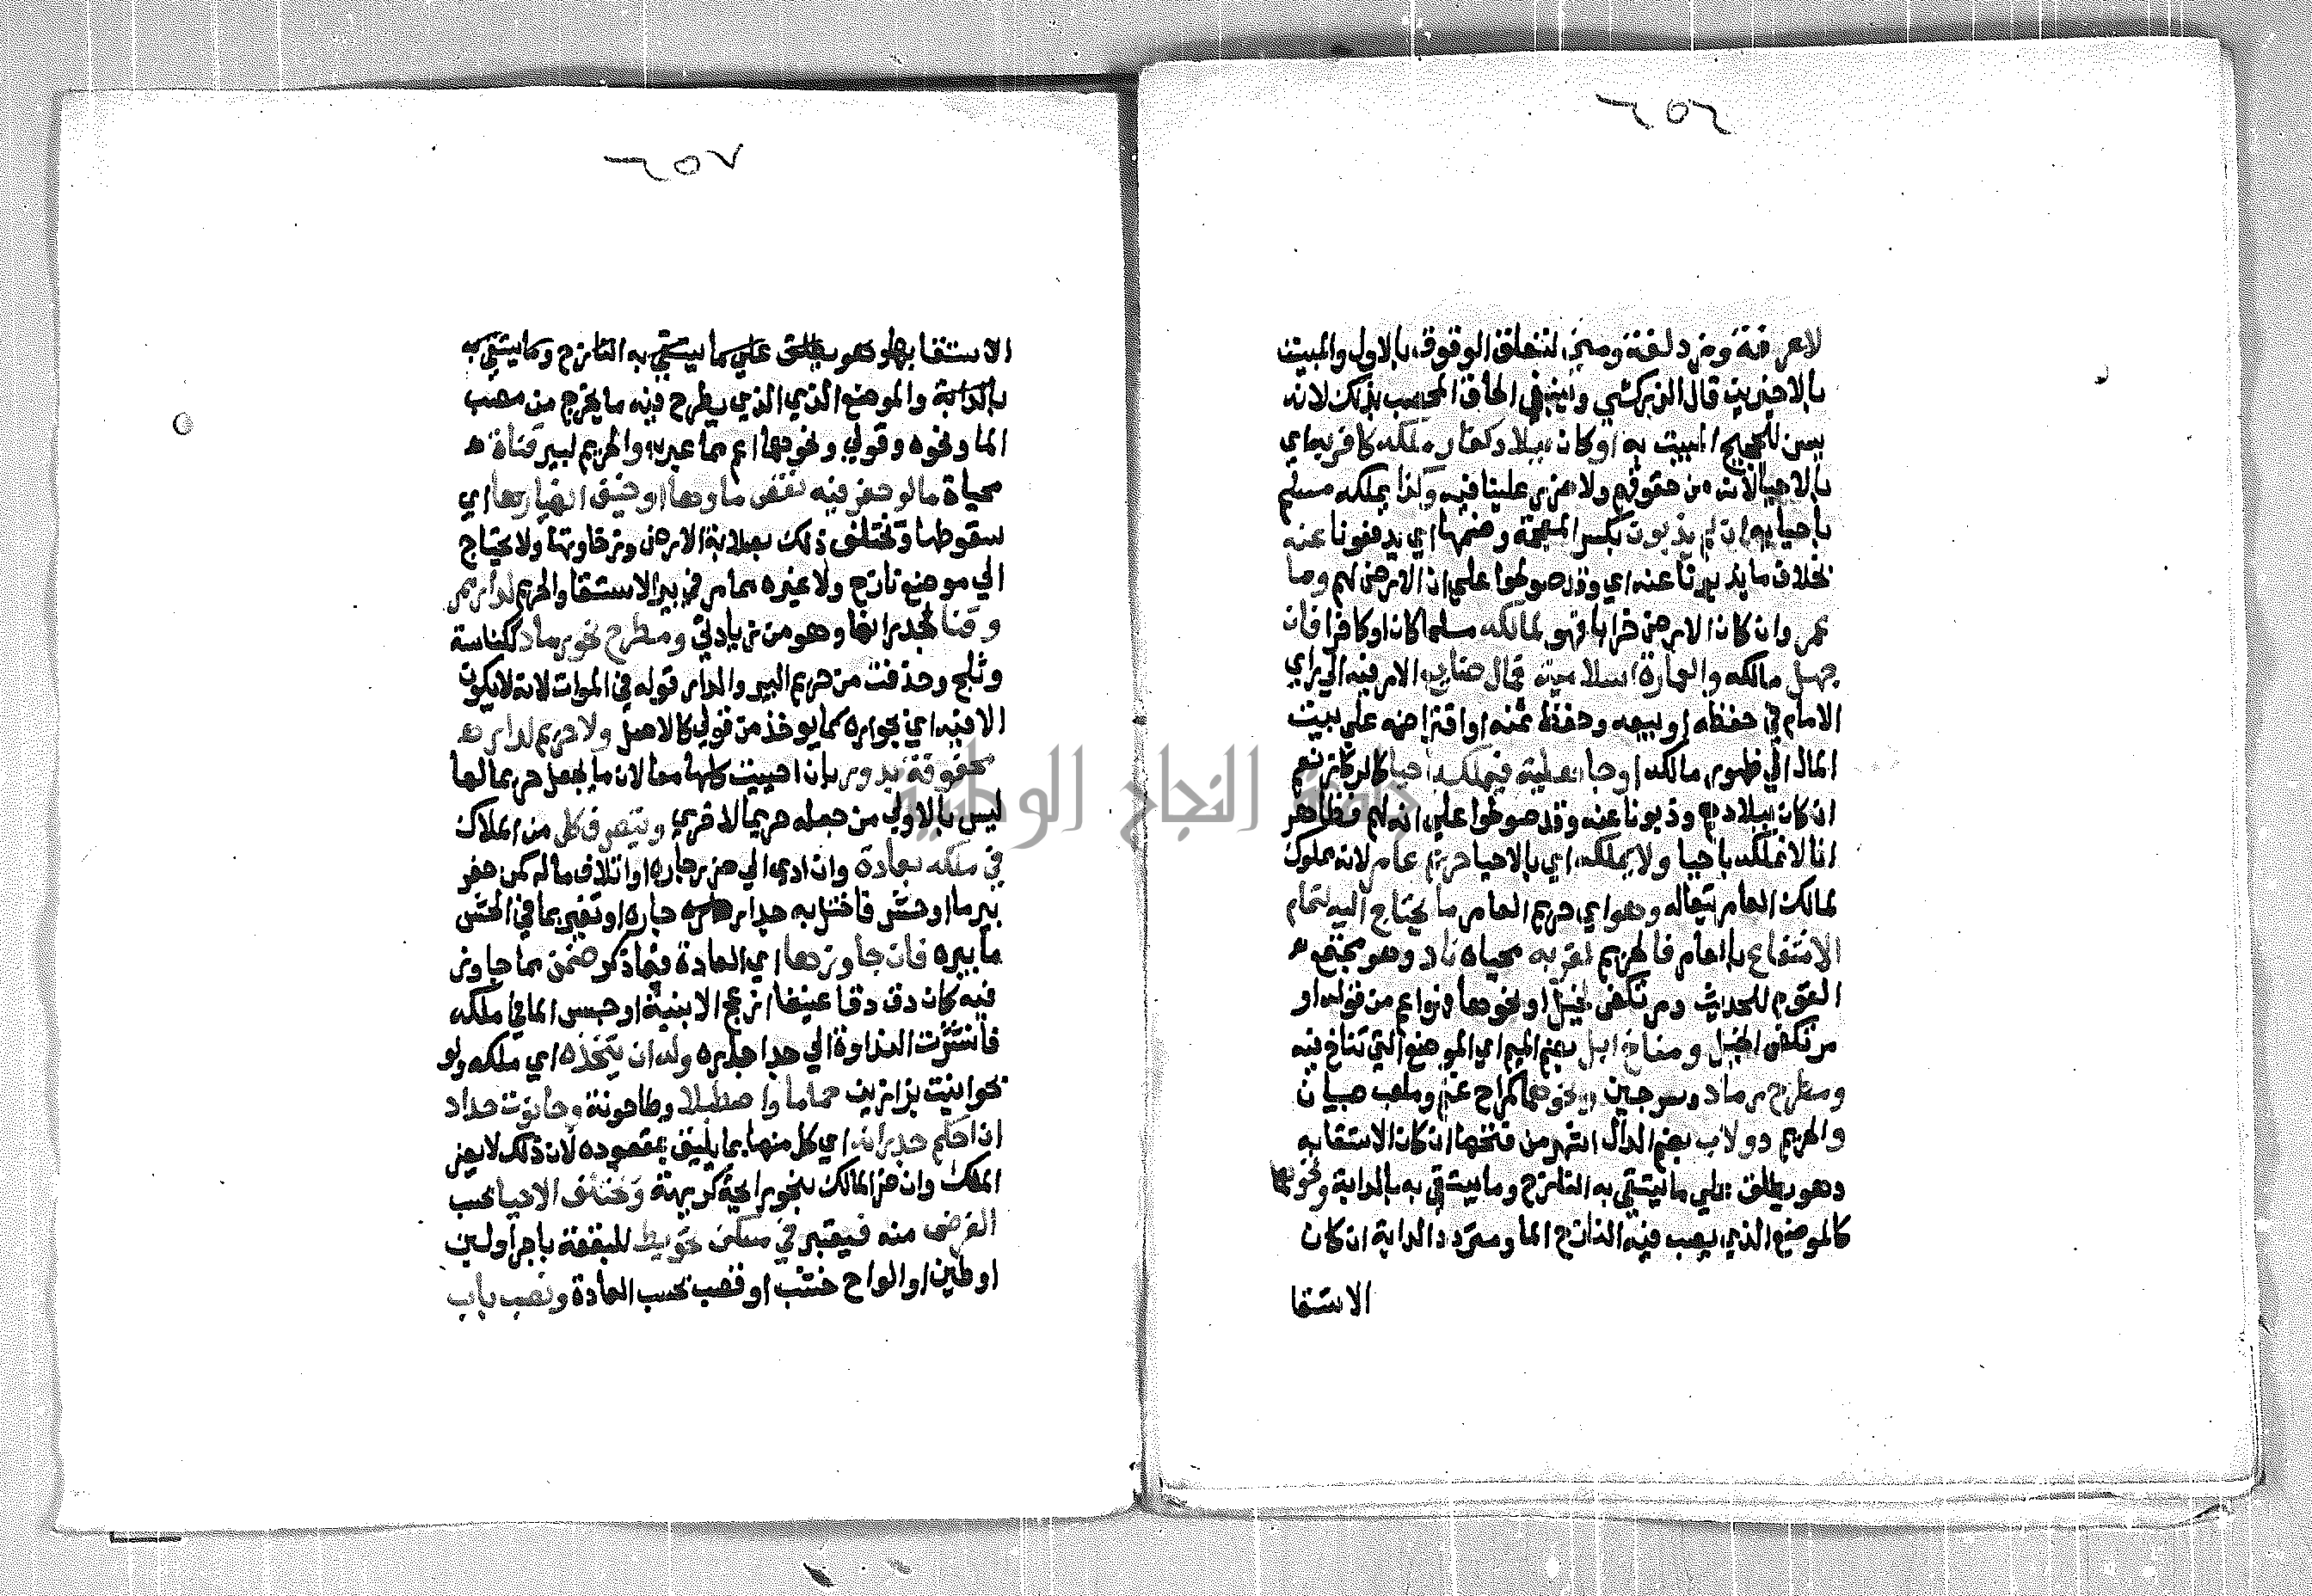 ٢٥٦
لا عرفة ومزدلفة ومنى لتعلق الوقوف بالاول والمبيت
بالاخيرين قال الزركشي وينبغي الحاق المحصب بذلك لانه
يسن للحجيج المبيت به او كان ببلاد كفار ملكه كافر به اي
بالاحيا لانه من حقوقهم ولا ضرر علينا فيه وكذا يملكه مسلم
باحيايه ان لم يذبونا بكسر المعجمة وضمها اي يدفعونا عنه
بخلاف ما يذبونا عنه اي وقد صولحوا علي ان الارض لهم وما
عمر وان كان الارض خرابا فهو لمالكه مسلما كان او كافرا فان
جهل مالكه والعمارة اسلامية فمال ضايع الامر فيه الي راي
الامام في حفظه او بيعه وحفظ ثمنه او اقتراضه علي بيت
المال الي ظهور مالكه او جاهلية فيملك باحيا كالركاز نعم
ان كان ببلادهم وذبونا عنه وقد صولحوا علي انه لهم فظاهر
انا لا نملكه باحيا ولا يملك اي بالاحيا حريم عامر لانه مملوك
لمالك العامر تبعا له وهو اي حريم العامر ما يحتاج اليه لتمام
الانتفاع بالعامر فالحريم لقرية محياة ناد وهو مجتمع
القوم للحديث ومرتكض لخيل او نحوها فهو اعم من قوله او
مرتكض الخيل ومناخ ابل بضم الميم اي الموضع التي تناخ فيه
ومطرح رماد وسرجين ونحوهما كمراح غنم وملعب صبيان
والحريم دولاب بضم الدال اشهر من فتحها ان كان الاستقا به
وهو يطلق علي ما يستقي به النازح وما يستقي به بالدابة ونحوها
كالموضع الذي يصب فيه النازح الما ومتردد الدابة ان كان
الاستقا
٢٥٧
الاستقا بها وهو يطلق علي ما يستقي به النازح وما يستقي به
بالدابة والموضع الذي الذي يطرح فيه ما يخرج من مصب
الما ونحوه وقولي ونحوهما اعم مما عبر به والحريم لبير قناة
محياة ما لو حفر فيه نقص ماوها او خيف انهيارها اي
سقوطها ويختلف ذلك بصلابة الارض ورخاوتها ولا يحتاج
الي موضع نازح ولا غيره مما مر في بير الاستقا والحريم لدار ممر
وفنا لجدرانها وهو من زيادتي ومطرح نحو رماد ككناسة
وثلج وحذفت من حريم البير والدار قوله في الموات لانه لا يكون
الا فيه اي بجواره كما يوخذ من قولي كالاصل ولا حريم لدار
محفوفة بدور بان احييت كلها معا لان ما يجعل حريما لها
ليس باولي من جعله حريما لاخري ويتصرف كل من الملاك
في ملكه بعادة وان ادي الي ضرر جاره او اتلاف ماله كمن حفر
بير ما او حش فاختل به جدار جاره او تغير بما في الحش
ما بيره فان جاوزها اي العادة فيما ذكر ضمن بما جاوز
فيه كان دق دقا عنيفا ازعج الابنية او حبس الما في ملكه
فانتشرت النداوة الي جدار جاره وله ان يتخذه اي ملكه ولو
بحوانيت بزازين حماما واصطبلا وطاحونة وحانوت حداد
ان احكم جدرانه اي كل منها بما يليق بمقصوده لان ذلك لا يضر
الملك وان ضر المالك بنحو رايحة كريهة ويختلف الاحيا بحسب
الغرض منه فيعتبر في مسكن تحويط للبقعة باجر او لبن
او طين او الواح خشب او قصب بحسب العادة ونصب باب